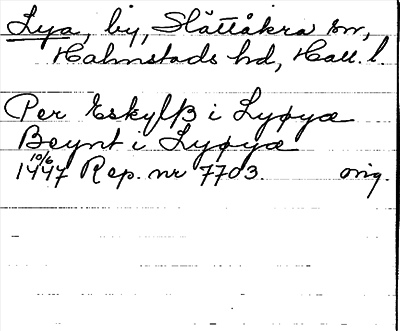 Lya, by, Slättåkra sn,
Halmstads hd, Hall. l.
Per Eskylß i Lyøyæ
Beynt i Lyøyæ
10/6
1447 Rep. nr 7703. orig.